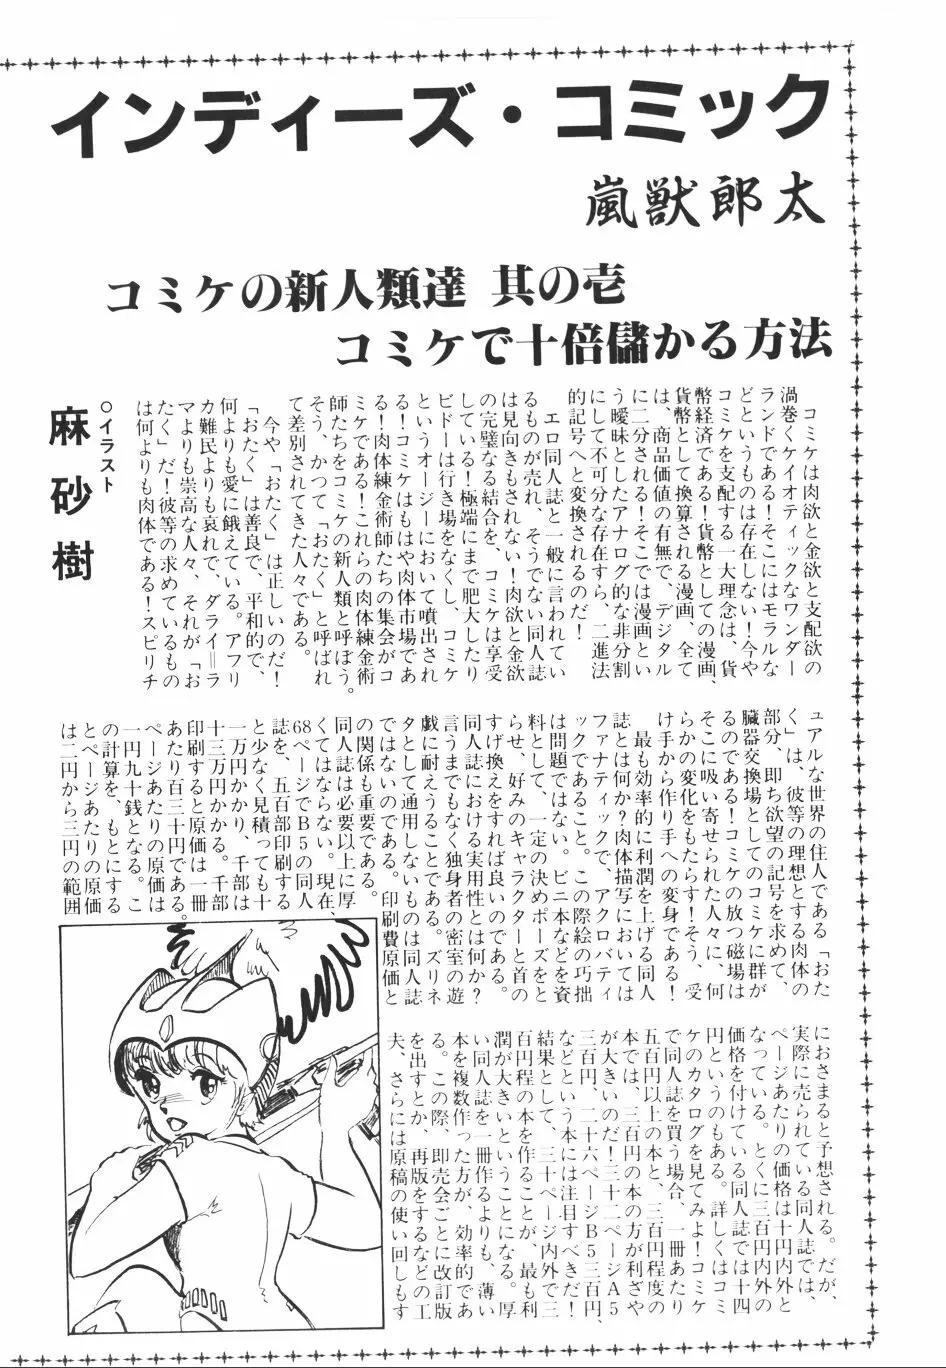 インディーズ・コミック
嵐獣郎太
コミケの新人類達 其の壱
コミケで十倍儲かる方法
コミケは肉欲と金欲と支配欲の
渦巻くケイオティックなワンダー
ランドである！そこにはモラルな
どというものは存在しない！今や
コミケを支配する一大理念は、貨
幣経済である！貨幣としての漫画、
貨幣として換算される漫画、全て
は、商品価値の有無で、デジタル
に二分される！そこでは漫画とい
う曖昧としたアナログ的な非分割
にして不可分な存在すら、二進法
的記号へと変換されるのだ！
エロ同人誌と一般に言われてい
るものが売れ、そうでない同人誌
は見向きもされない！肉欲と金欲
の完璧なる結合を、コミケは享受
している！極端にまで肥大したリ
ビドーは行き場をなくし、コミケ
というオージーにおいて噴出され
る！コミケはもはや肉体市場であ
る！肉体練金術師たちの集会がコ
ミケである！これらの肉体練金術
師たちをコミケの新人類と呼ぼう。
そう、かつて「おたく」と呼ばれ
て差別されてきた人々である。
今や「おたく」は正しいのだ！
「おたく」は善良で、平和的で、
何よりも愛に餓えている。アフリ
カ難民よりも哀れで、ダライ＝ラ
マよりも崇高な人々、それが「お
たく」だ！彼等の求めているもの
は何よりも肉体である！スピリチ
○イラスト
麻砂樹
ュアルな世界の住人である「おた
く」は、彼等の理想とする肉体の
部分、即ち欲望の記号を求めて、
臓器交換場としてのコミケに群が
るのである！コミケの放つ磁場は
そこに吸い寄せられた人々に、何
らかの変化をもたらす！そう、受
け手から作り手への変身である！
最も効率的に利潤を上げる同人
誌とは何か？肉体描写においては
ファナティックで、アクロバティ
ックであること。この際絵の巧拙
は問題ではない。ビニ本などを資
料として、一定の決めポーズをと
らせ、好みのキャラクターと首の
すげ換えをすれば良いのである。
同人誌における実用性とは何か？
言うまでもなく独身者の密室の遊
戯に耐えうることである。ズリネ
タとして通用しないものは同人誌
ではないのである。印刷費原価と
の関係も重要である。
同人誌は必要以上に厚
くてはならない。現在、
68ページでB5の同人
誌を、五百部印刷する
と少なく見積っても十
一万円かかり、千部は
十三万円かかる。千部
印刷すると原価は一冊
あたり百三十円である。
ページあたりの原価は
一円九十銭となる。こ
の計算を、もとにする
とページあたりの原価
は二円から三円の範囲
におさまると予想される。だが、
実際に売られている同人誌では、
ページあたりの価格は十円内外と
なっている。とくに三百円内外の
価格を付けている同人誌では十四
円というのもある。詳しくはコミ
ケのカタログを見てみよ！コミケ
で同人誌を買う場合、一冊あたり
五百円以上の本と、三百円程度の
本では、三百円の本の方が利ざや
が大きいのだ！三十二ページA5
三百円、二十六ページB5三百円、
などという本には注目すべきだ！
結果として、三十ページ内外で三
百円程の本を作ることが、最も利
潤が大きいということになる。厚
い同人誌を一冊作るよりも、薄い
本を複数作った方が、効率的であ
る。この際、即売会ごとに改訂版
を出すとか、再版をするなどの工
夫、さらには原稿の使い回しもす